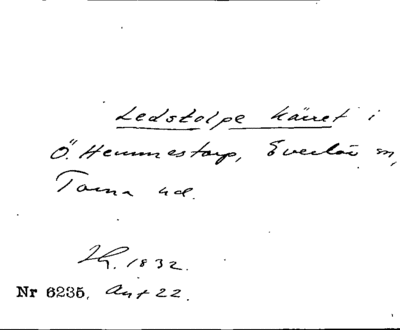 Ledstolpe kärret i
Ö. Hemmestorp, Everlöv sn,
Torna hd.
1832.
Nr 6235, Ant 22.